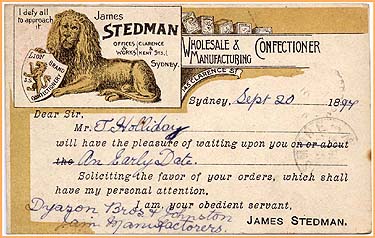 I defy all
to approach
it.
James
STEDMAN
OFFICES & WORKS
CLARENCE & KENT STS.
SYDNEY.
LION
BRAND
CONFECTIONERY
WHOLESALE &
MANUFACTURING CONFECTIONER
CLARENCE ST
Sydney, Sept 20 1894
Dear Sir.
Mr. T. Holliday
will have the pleasure of waiting upon you on or about
the An Early Date.
Soliciting the favor of your orders, which shall
have my personal attention.
I am, your obedient servant,
JAMES STEDMAN.
Dyason Bros & Johnston
Jam Manufacturers.